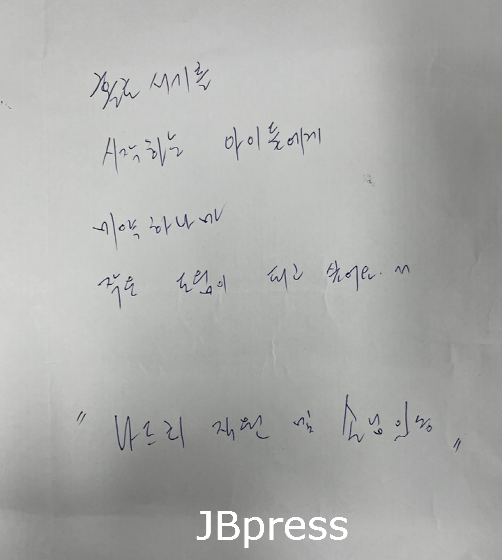 홀로 서기를
시작하는 아이들에게
미약하나마
작은 도움이 되고 싶어요. ^^
" 나드리 직원 및 손님일동 "
JBpress